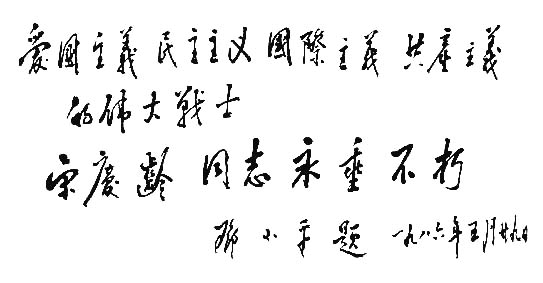 愛國主義 民主主义 國際主義 共產主義
的伟大戰士
宋慶齡 同志永垂不朽
鄧小平題 一九八六年五月廿九日